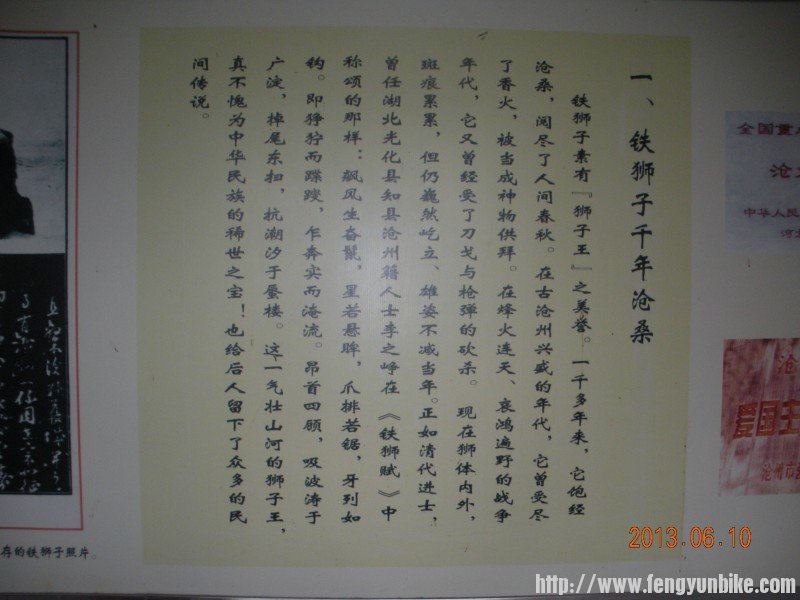 一、铁狮子千年沧桑
铁狮子素有『狮子王』之美誉。一千多年来，它饱经
沧桑，阅尽了人间春秋。在古沧州兴盛的年代，它曾受尽
了香火，被当成神物供拜。在烽火连天、哀鸿遍野的战争
年代，它又曾经受了刀戈与枪弹的砍杀。现在狮体内外，
斑痕累累，但仍巍然屹立、雄姿不减当年。正如清代进士，
曾任湖北光化县知县沧州籍人士李之峥在《铁狮赋》中
称颂的那样：飙风生奋鬣，星若悬眸，爪排若锯，牙列如
钩。即狰狞而蹀躞，乍奔实而淹流。昂首四顾，吸波涛于
广淀，掉尾东扫，抗潮汐于蜃楼。这一气壮山河的狮子王，
真不愧为中华民族的稀世之宝！也给后人留下了众多的民
间传说。
全国重
沧
中华人民
河
沧
爱国主
沧州市
存的铁狮子照片。
2013.06.10
http://www.fengyunbike.com